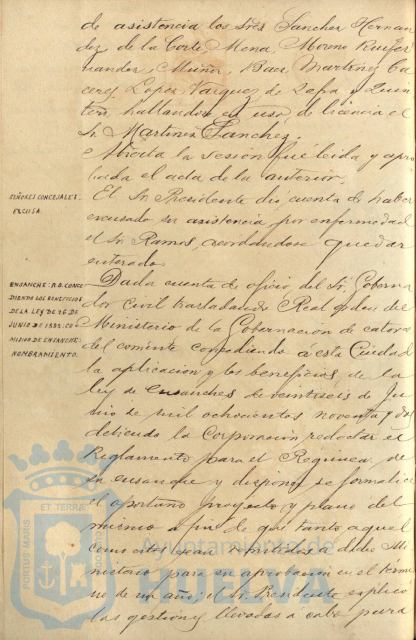 de asistencia los Sres Sanchez Hernan
dez, de la Corte, Mena, Moreno, Ruifer
nandez, Muñoz, Baez, Martinez Ca
ceres, Lopez, Vazquez de Zafa y Quin
tero, hallandose en uso de licencia el
Sr. Martinez Sanchez.
Abierta la sesion fué leida y apro
bada el acta de la anterior.
SEÑORES CONCEJALES:
EXCUSA.
El Sr. Presidente dió cuenta de haber
excusado su asistencia por enfermedad
el Sr. Ramos, acordandose quedar
enterado.
ENSANCHE: R.O. CONCE
DIENDO LOS BENEFICIOS
DE LA LEY DE 26 DE
JUNIO DE 1892. CO
MISION DE ENSANCHE:
NOMBRAMIENTO.
Dada cuenta de oficio del Sr. Goberna
dor Civil trasladando Real orden del
Ministerio de la Gobernacion de catorce
del corriente concediendo á esta Ciudad
la aplicacion y los beneficios de la
ley de Ensanches de veintiseis de Ju
nio de mil ochocientos noventa y dos
debiendo la Corporacion redactar el
Reglamento para el Regimen de
su ensanche y disponer se formalice
el oportuno proyecto y plano del
mismo á fin de que tanto aquel
como estos sean remitidos á dicho Mi
nisterio para su aprobacion en el termi
no de un año; el Sr. Presidente explicó
las gestiones llevadas á cabo para
PORTUS MARIS ET TERRAE
Ayuntamiento de
HUELVA